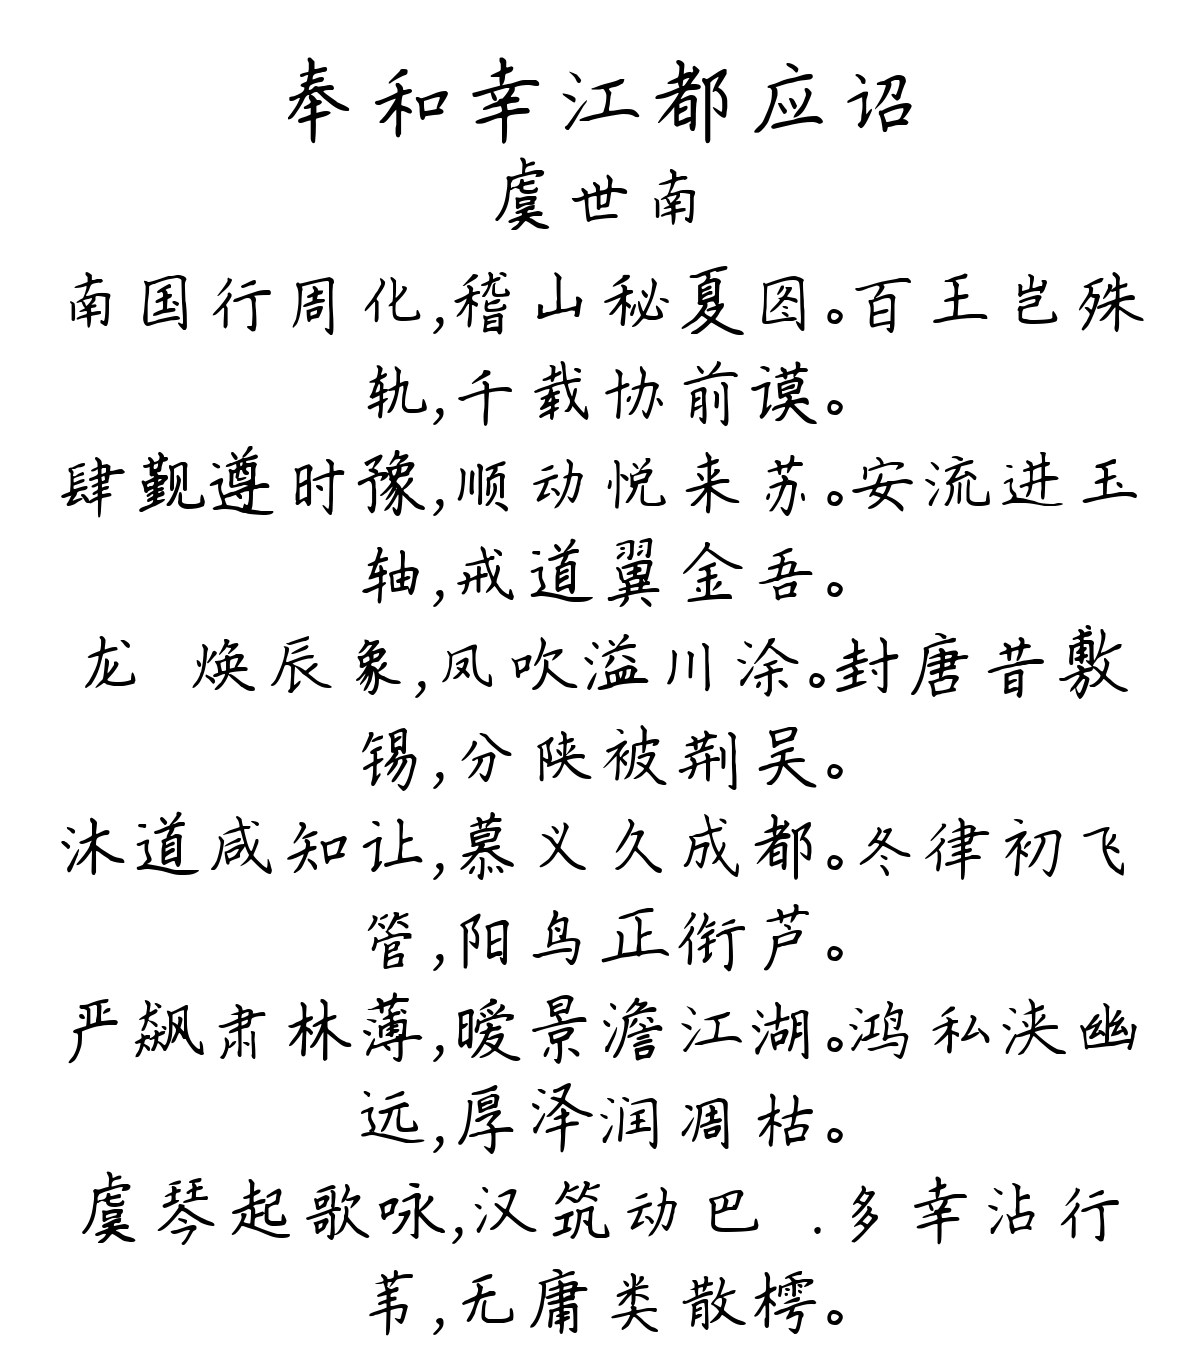 奉和幸江都应诏
虞世南
南国行周化,稽山秘夏图。百王岂殊
轨,千载协前谟。
肆觐遵时豫,顺动悦来苏。安流进玉
轴,戒道翼金吾。
龙 焕辰象,凤吹溢川涂。封唐昔敷
锡,分陕被荆吴。
沐道咸知让,慕义久成都。冬律初飞
管,阳鸟正衔芦。
严飙肃林薄,暧景澹江湖。鸿私浃幽
远,厚泽润凋枯。
虞琴起歌咏,汉筑动巴 .多幸沾行
苇,无庸类散樗。